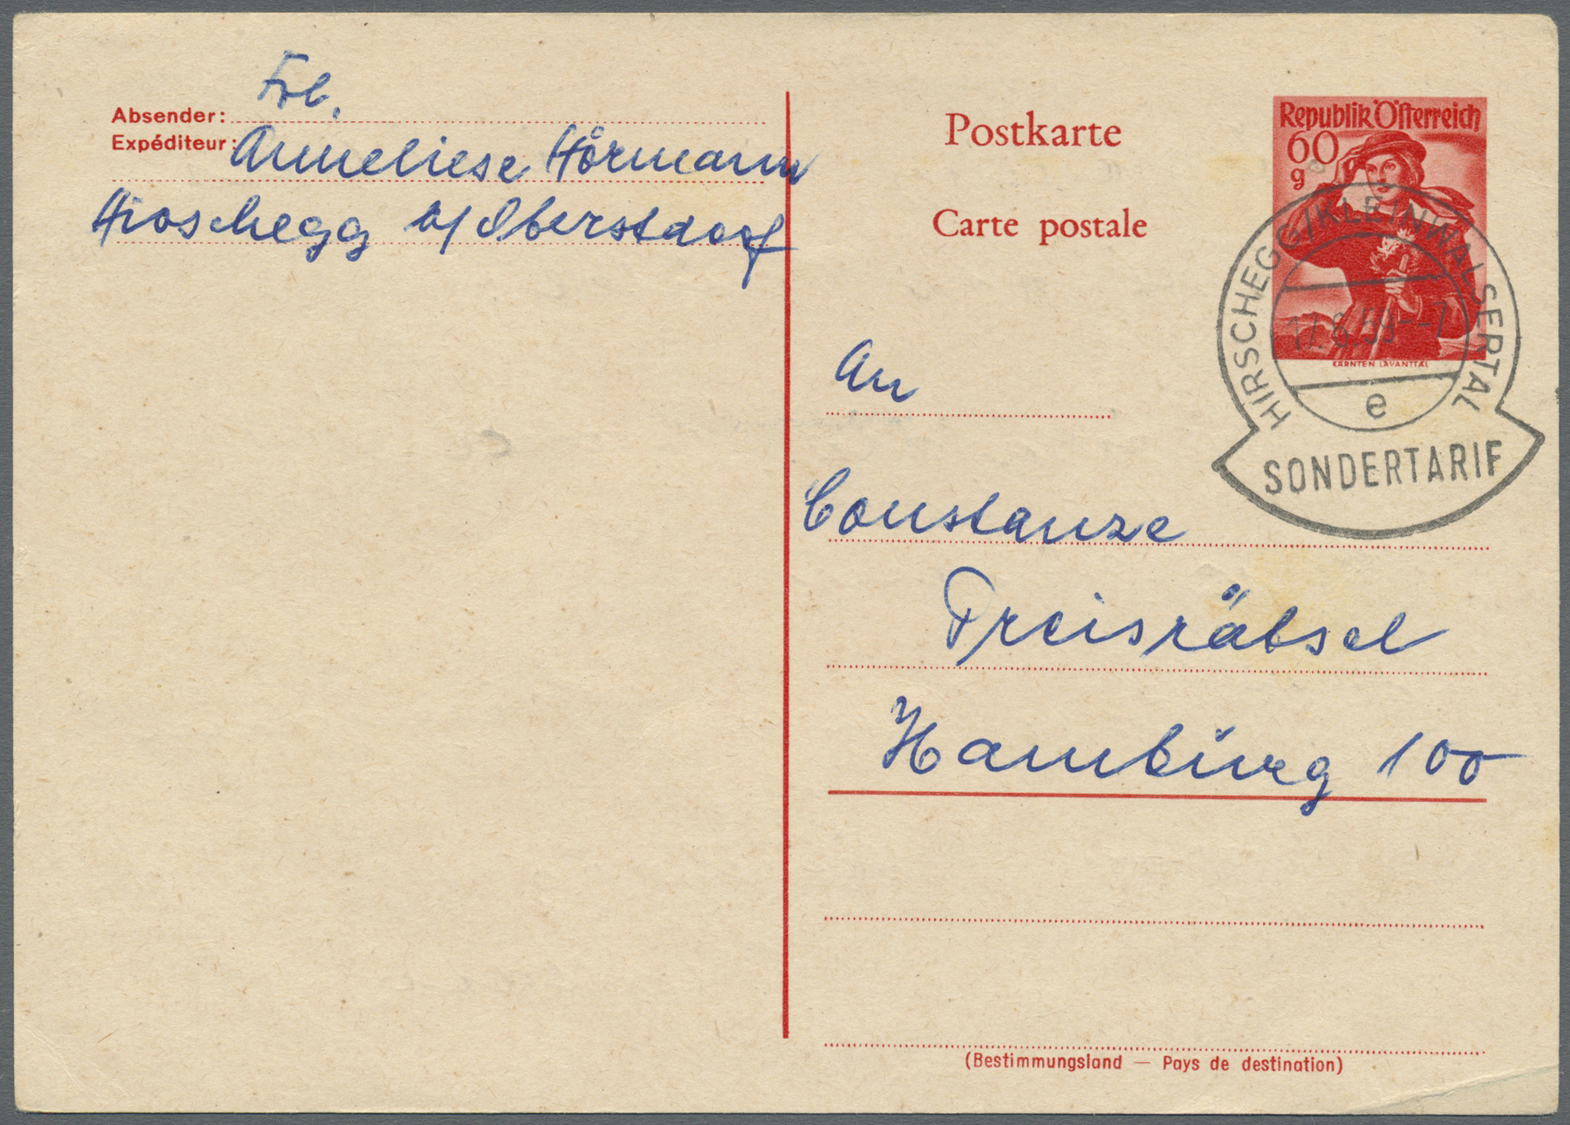 Frl.
Absender:
Expéditeur: Anneliese Hörmann
Hirschegg b/Oberstdorf
Postkarte
Carte postale
Republik Österreich
60
g
KÄRNTEN LAVANTTAL
HIRSCHEGG/KLEINWALSERTAL
e
SONDERTARIF
An
Constanze
Preisrätsel
Hamburg 100
(Bestimmungsland — Pays de destination)